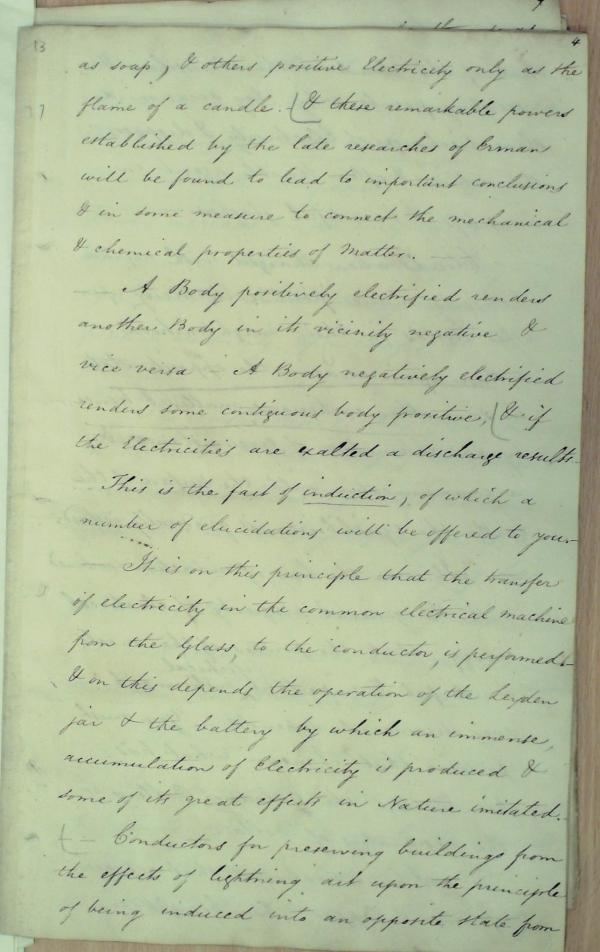 13 4
as soap, & others positive Electricity only as the
flame of a candle. [& these remarkable powers
established by the late researches of Erman
will be found to lead to important conclusions
& in some measure to connect the mechanical
& chemical properties of Matter. —
— A Body positively electrified renders
another Body in its vicinity negative &
vice versa – A Body negatively electrified
renders some contiguous body positive, [& if
the Electricities are exalted a discharge results.
This is the fact of induction, of which a
number of elucidations will be offered to you.–
It is on this principle that the transfer
of electricity in the common electrical machine
from the Glass, to the conductor, is performed
& on this depends the operation of the Leyden
jar & the battery by which an immense,
accumulation of Electricity is produced &
some of its great effects in Nature imitated.–
[– Conductors for preserving buildings from
the effects of lightning act upon the principle
of being induced into an opposite state from